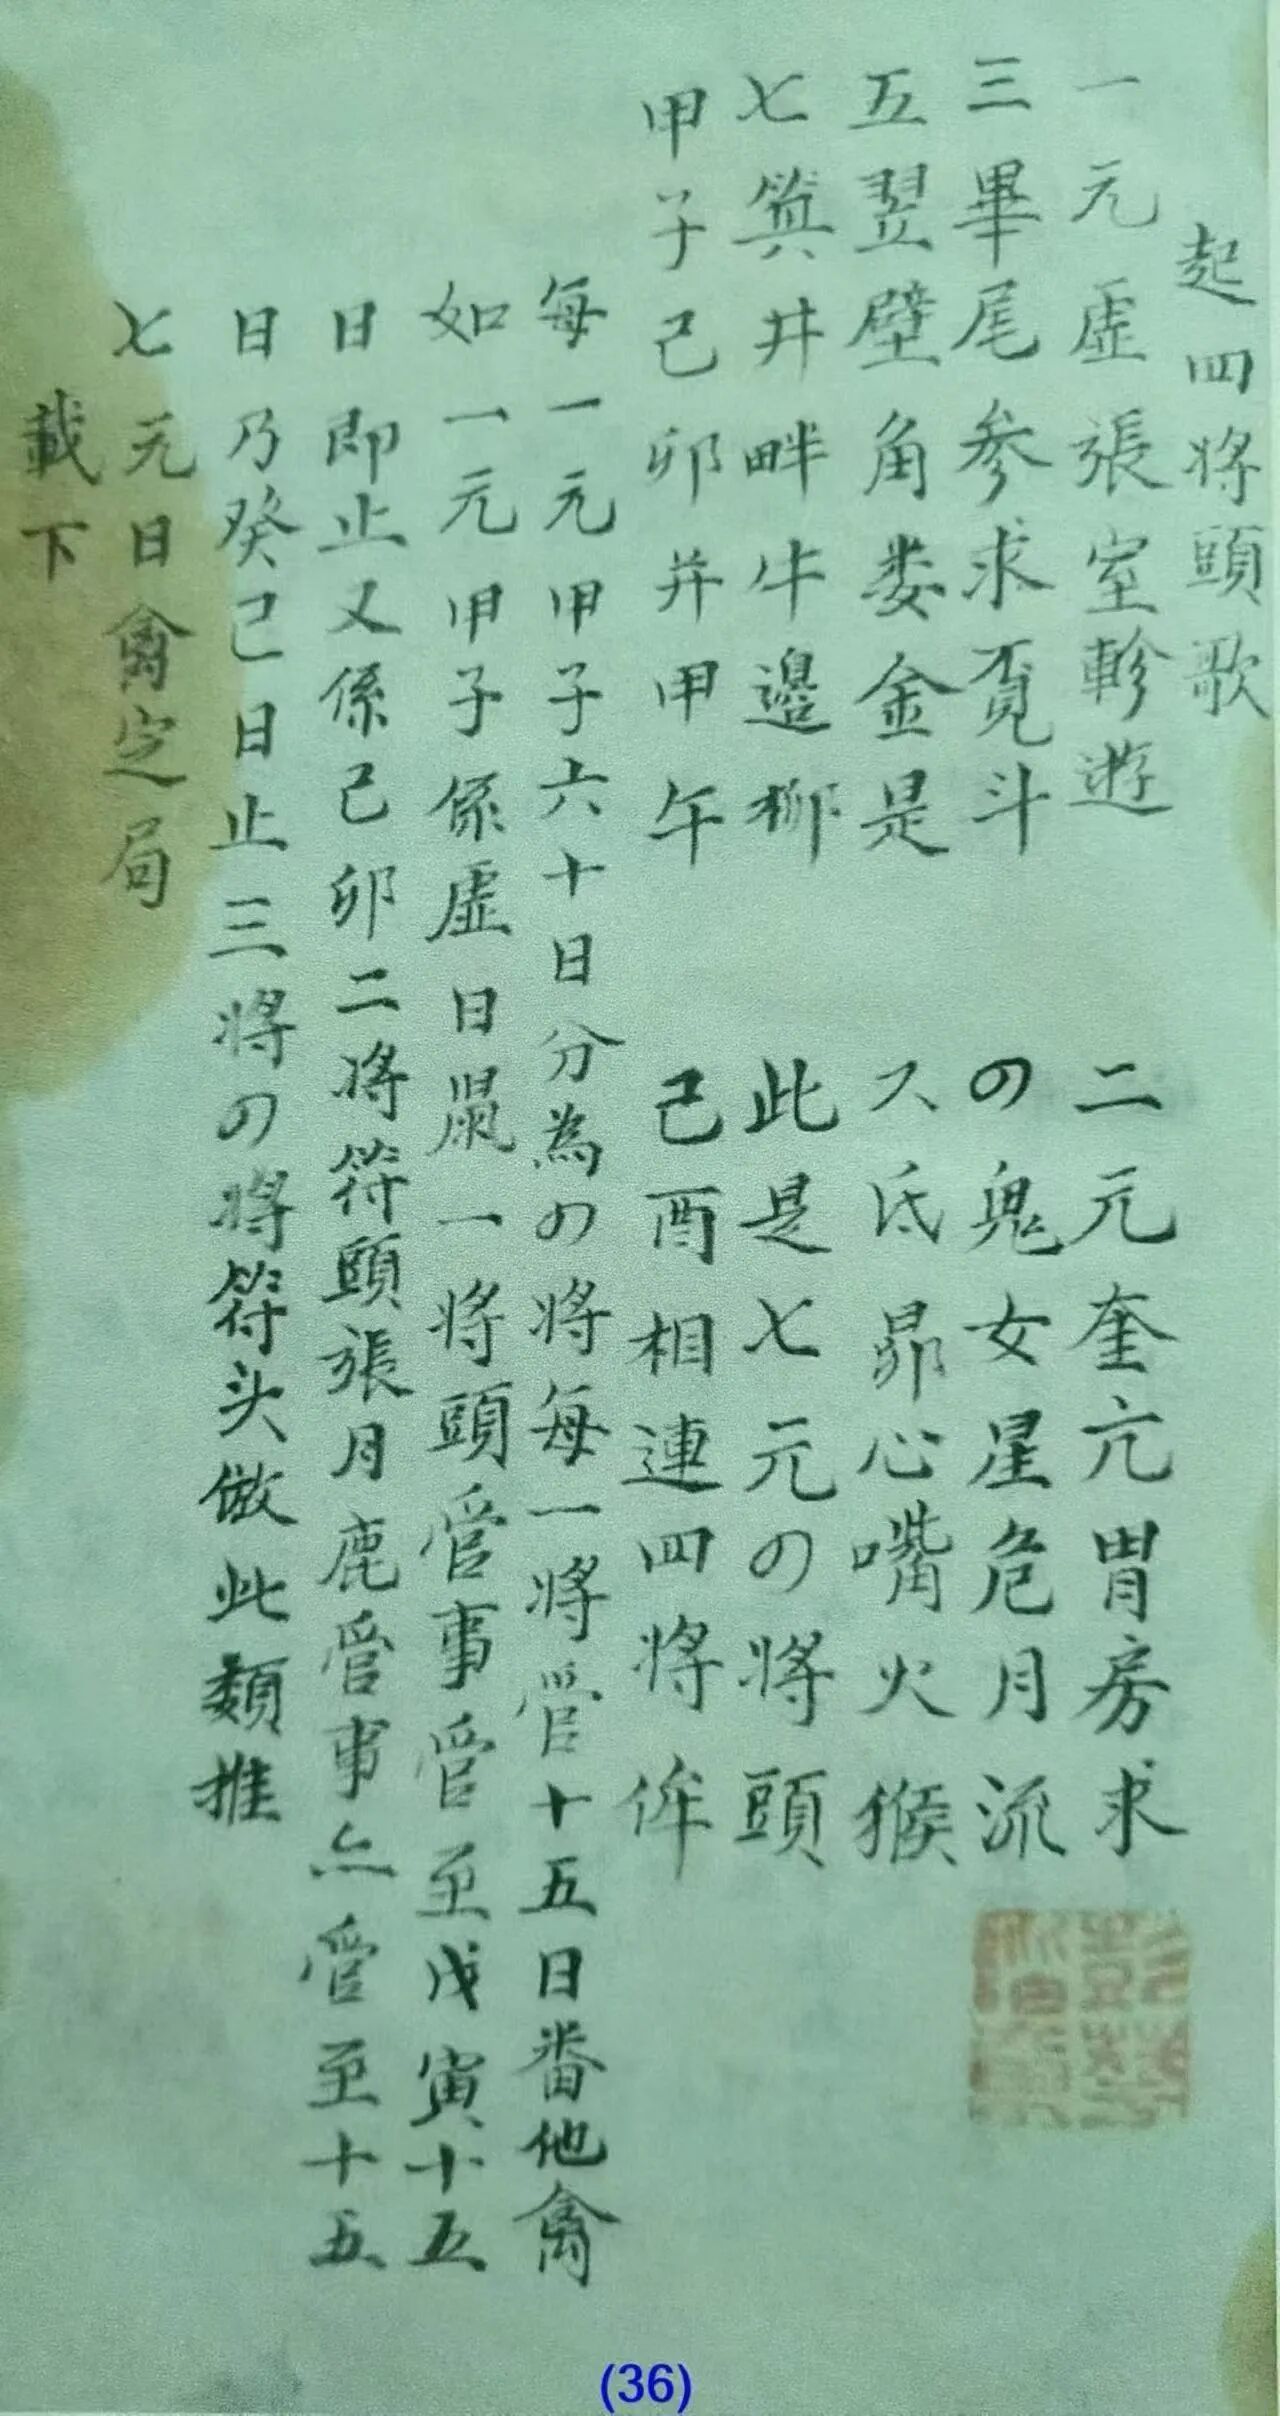 起四将頭歌
一元虚張室軫遊 二元奎亢胃房求
三畢尾参求覓斗 の鬼女星危月流
五翌壁角娄金是 六氐昴心嘴火猴
七箕井畔牛邉柳 此是七元の将頭
甲子己卯并甲午 己酉相連四将侔
每一元甲子六十日分為の将每一将管十五日番他禽
如一元甲子係虚日鼠一将頭管事管至戊寅十五
日即止又係己卯二将符頭張月鹿管事亦管至十五
日乃癸巳日止三将の将符头倣此類推
七元日禽定局
載下
(36)